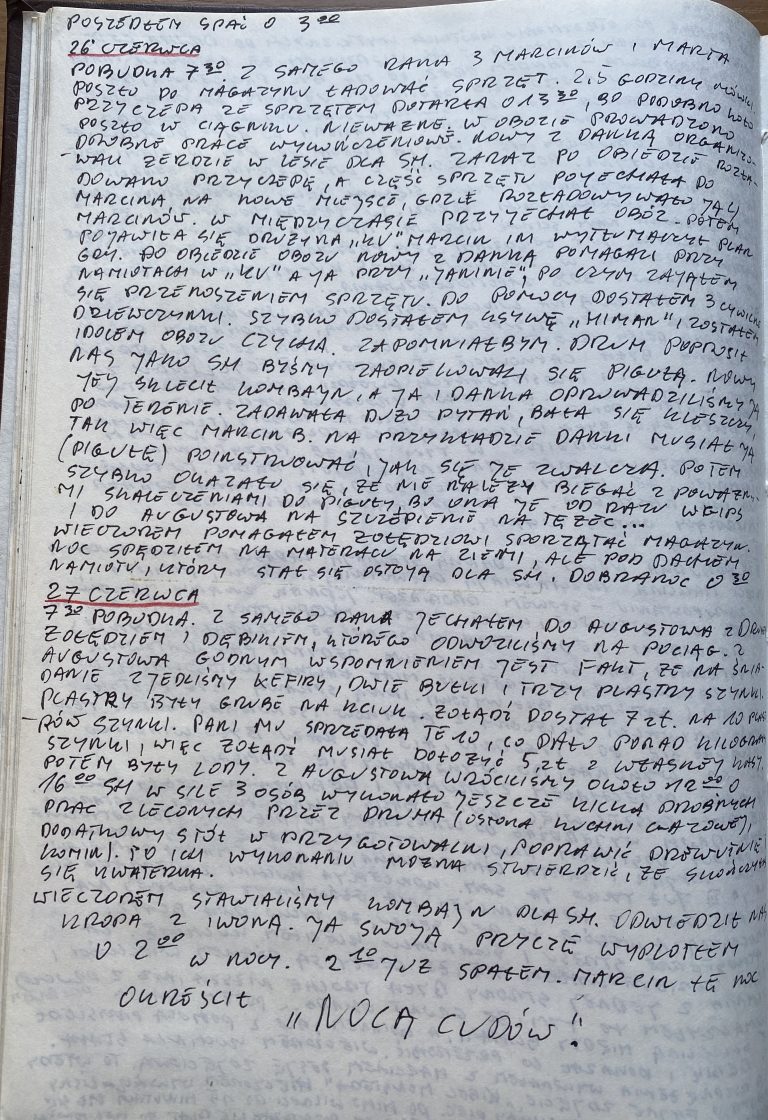 POSZEDŁEM SPAĆ O 3 00
26 CZERWCA
POBUDKA 7 30 Z SAMEGO RANA 3 MARCINÓW I MARTA
POSZŁO DO MAGAZYNU ŁADOWAĆ SPRZĘT. 2,5 GODZINY
PRZYCZEPA ZE SPRZĘTEM DOTARŁA O 13 30, BO PODOBNO KOŁO
POSZŁO W CIĄGNIKU. NIEWAŻNE, W OBOZIE PROWADZONO
DROBNE PRACE WYKOŃCZENIOWE. NOWY Z DANKĄ ORGANIZO-
WALI ŻERDZIE W LESIE DLA SH. ZARAZ PO OBIEDZIE ROZŁA-
DOWANO PRZYCZEPĘ, A CZĘŚĆ SPRZĘTU POJECHAŁA DO
MARCINA, NA NOWE MIEJSCE, GDZIE ROZŁADOWYWAŁO JĄ 4
MARCINÓW. W MIĘDZYCZASIE PRZYJECHAŁ OBÓZ. POTEM
POJAWIŁA SIĘ DRUŻYNA „KU” MARCIN IM WYTŁUMACZYŁ PLAN
GRY. PO OBIEDZIE OBOZU NOWY Z DANKĄ POMAGALI PRZY
NAMIOTACH W „KU” A JA PRZY „JANINIE”, PO CZYM ZAJĄŁEM
SIĘ PRZENOSZENIEM SPRZĘTU. DO POMOCY DOSTAŁEM 3 CYWILNE
DZIEWCZYNKI. SZYBKO DOSTAŁEM KSYWĘ „HIMAN” I ZOSTAŁEM
IDOLEM OBOZU CZYCHA. ZAPOMNIAŁBYM. DRUH POPROSIŁ
NAS JAKO SH BYŚMY ZAOPIEKOWALI SIĘ PIGUŁĄ. NOWY
JEJ SKLECIŁ KOMBAJN, A JA I DANKA OPROWADZILIŚMY JĄ
PO TERENIE. ZADAWAŁA DUŻO PYTAŃ, BAŁA SIĘ KLESZCZY,
TAK WIĘC MARCIN B. NA PRZYKŁADZIE DANKI MUSIAŁ JĄ
(PIGUŁĘ) POINSTRUOWAĆ, JAK SIĘ JE ZWALCZA. POTEM
SZYBKO OKAZAŁO SIĘ, ŻE NIE NALEŻY BIEGAĆ Z POWAŻNY-
MI SKALECZENIAMI DO PIGUŁY, BO ONA JE OD RAZU W GIPS
I DO AUGUSTOWA NA SZCZEPIENIE NA TĘŻEC...
WIECZOREM POMAGAŁEM ŻOŁĘDZIOWI SPORZĄTAĆ MAGAZYN.
NOC SPĘDZIŁEM NA MATERACU NA ZIEMI, ALE POD DACHEM
NAMIOTU, KTÓRY STAŁ SIĘ OSTOJĄ DLA SH. DOBRANOC 0 30
27 CZERWCA
7 30 POBUDKA. Z SAMEGO RANA JECHAŁEM DO AUGUSTOWA Z DRUHEM
ŻOŁĘDZIEM I DĘBIKIEM, KTÓREGO ODWOZILIŚMY NA POCIĄG. Z
AUGUSTOWA GODNYM WSPOMNIENIEM JEST FAKT, ŻE NA ŚNIA-
DANIE ZJEDLIŚMY KEFIRY, DWIE BUŁKI I TRZY PLASTRY SZYNKI.
PLASTRY BYŁY GRUBE NA KCIUK. ŻOŁĄDŹ DOSTAŁ 7 zł. NA 10 PLAST-
RÓW SZYNKI. PANI MU SPRZEDAŁA TE 10, CO DAŁO PONAD KILOGRAM
SZYNKI, WIĘC ŻOŁĄDŹ MUSIAŁ DOŁOŻYĆ 5 zł. Z WŁASNEJ KASY.
POTEM BYŁY LODY. Z AUGUSTOWA WRÓCILIŚMY OKOŁO 12 00 O
16 00 SH W SILE 3 OSÓB WYKONAŁO JESZCZE KILKA DROBNYCH
PRAC ZLECONYCH PRZEZ DRUHA (OSŁONA KUCHNI GAZOWEJ,
DODATKOWY STÓŁ W PRZYGOTOWALNI, POPRAWIĆ DREWUTNIĘ
KOMIN). PO ICH WYKONANIU MOŻNA STWIERDZIĆ, ŻE SKOŃCZYŁA
SIĘ KWATERKA.
WIECZOREM STAWIALIŚMY KOMBAJN DLA SH. ODWIEDZIŁ NAS
KROPA Z IWONĄ. JA SWOJĄ PRYCZĘ WYPLOTŁEM
O 2 00 W NOCY. 2 10 JUŻ SPAŁEM. MARCIN TĘ NOC
OKREŚLIŁ „NOCĄ CUDÓW!”